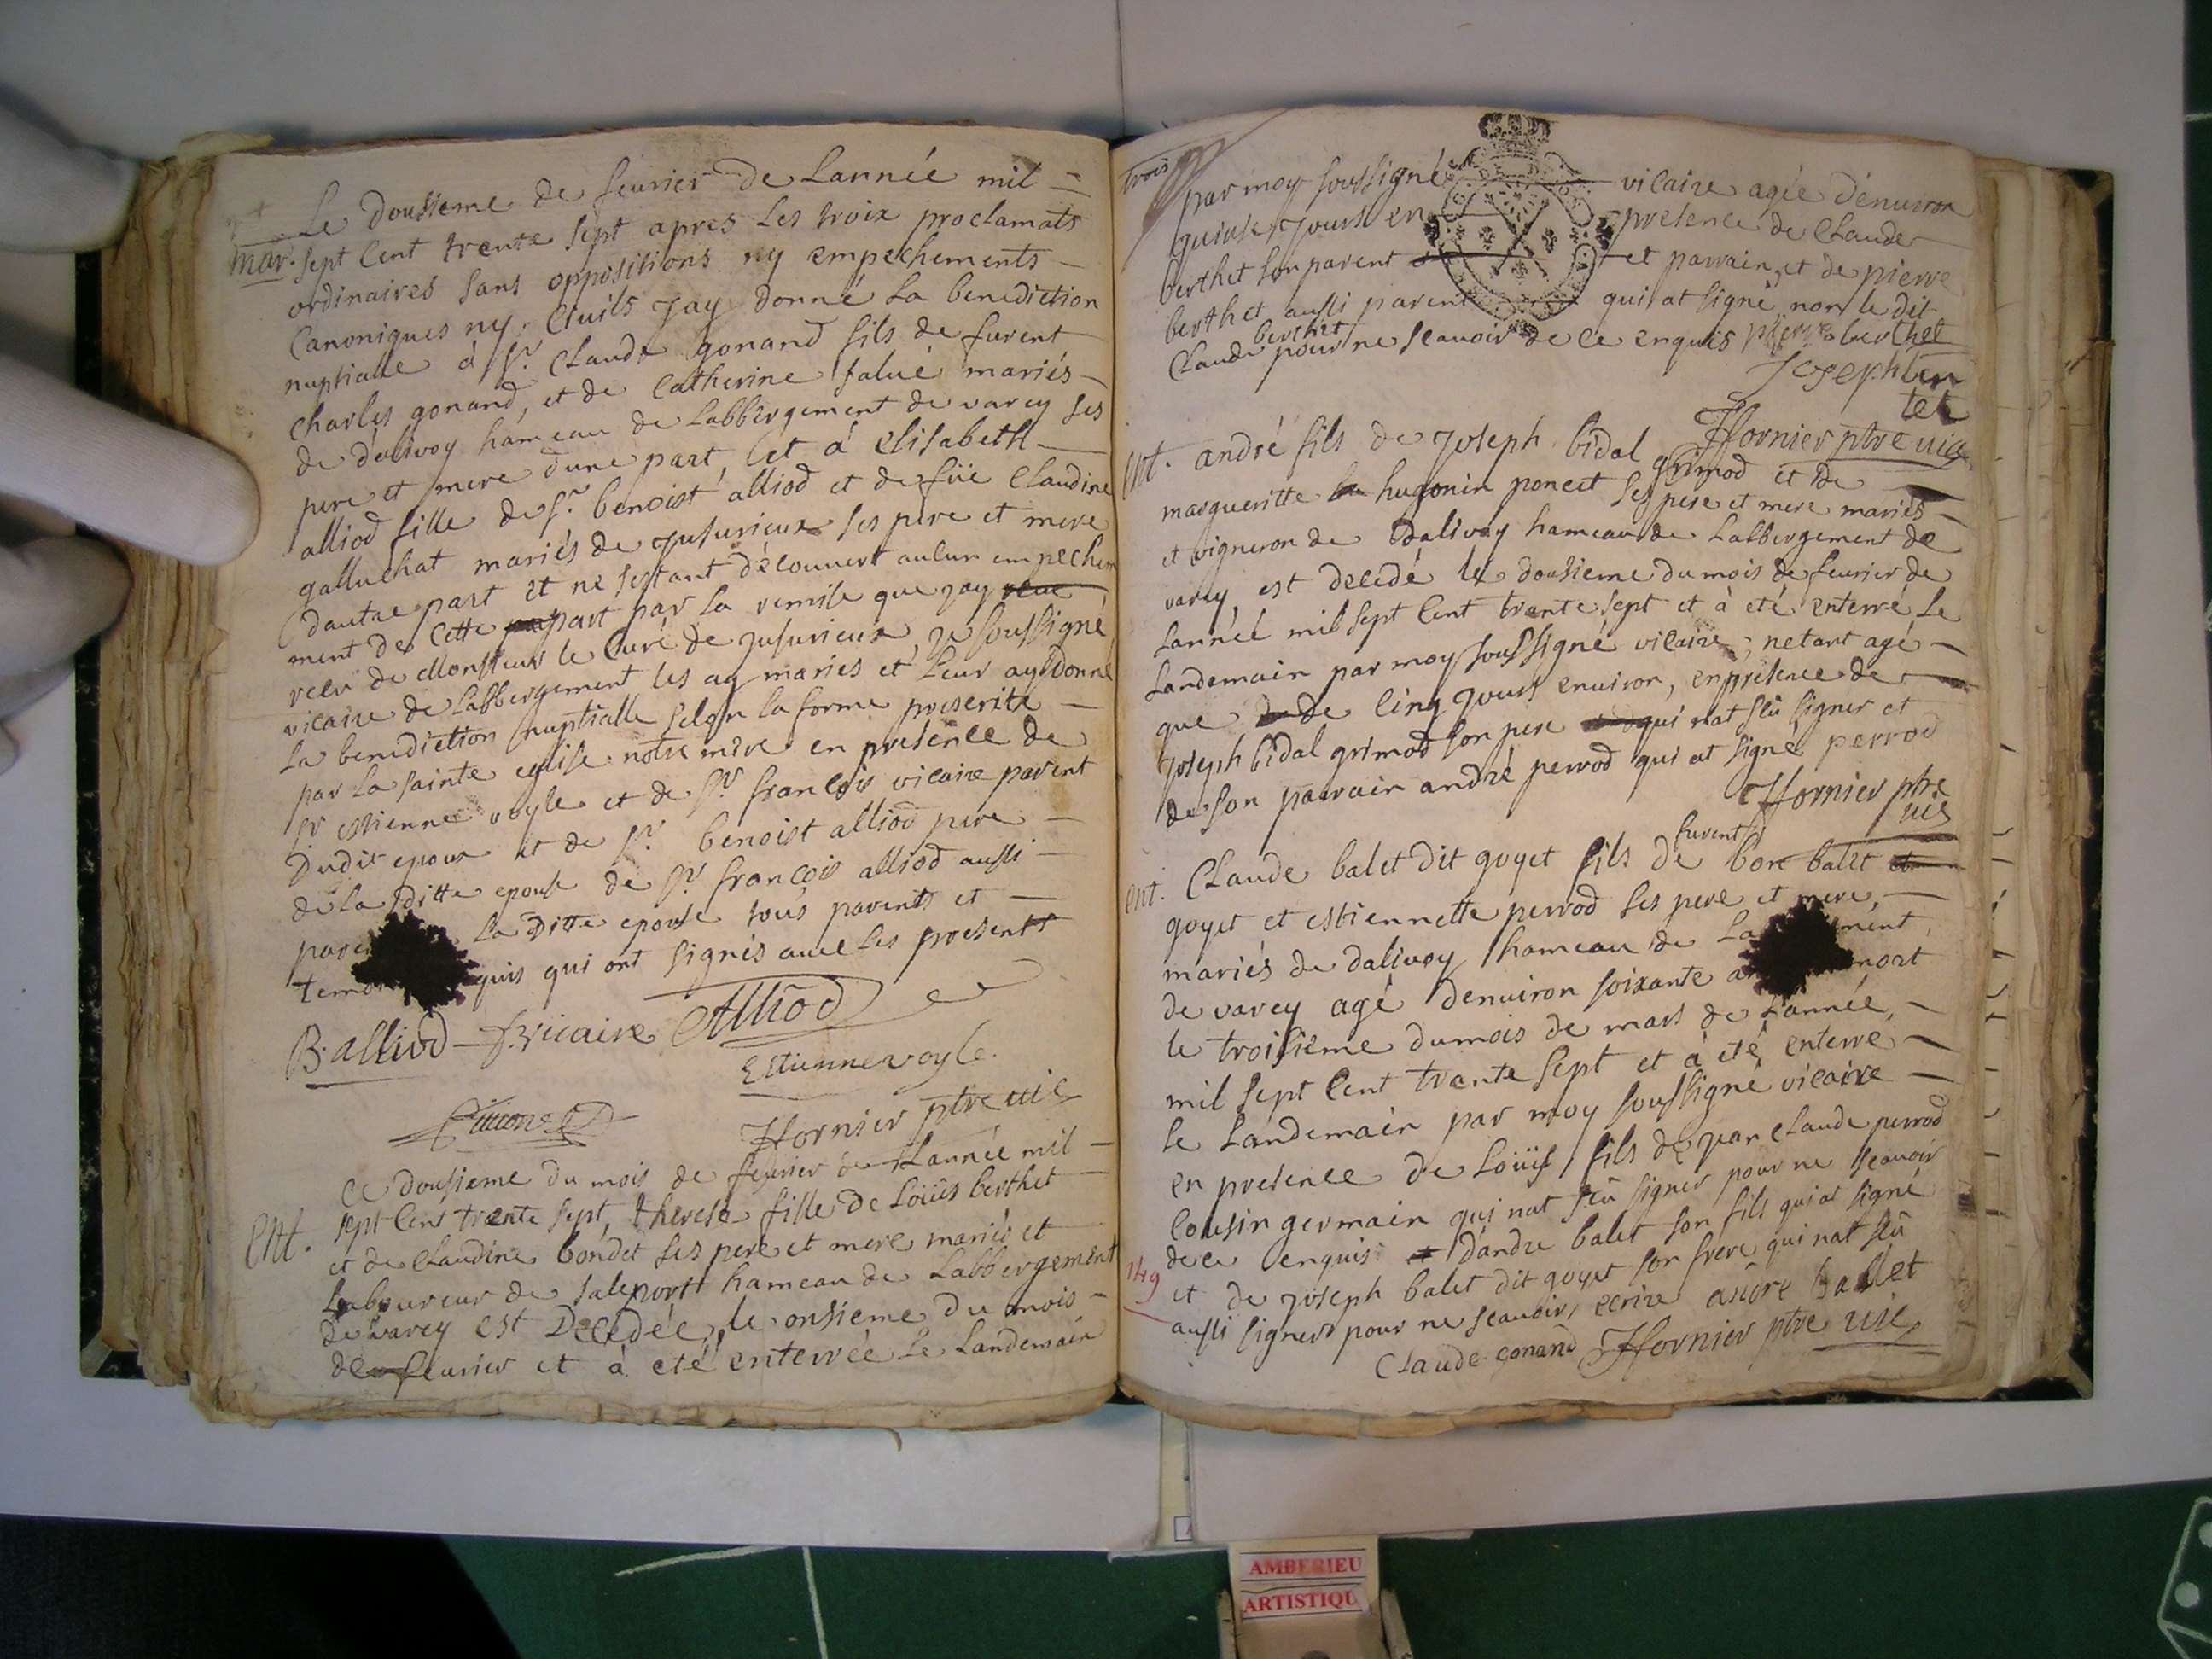 Le dousieme de feurier de Lannée mil
mar. sept Cent trente sept apres Les troix proclamats
ordinaires sans oppositions ny empechements
Canoniques ny Ciuils Jay donné La benediction
nuptialle à sr. Claude gonand fils de furent
Charles gonand, et de Catherine falué mariés
de dalivoy hameau de Labbergement de varey ses
pere et mere dune part, et à elisabeth
alliod fille de sr. benoist alliod et de füe Claudine
galluchat mariés de Jusurieux ses pere et mere
dautre part et ne sestant découvert aulun empeche
ment de Cette part par La remise que Jay
de Monsieur le Curé de Jusurieux, Je soussigné
vicaire de Labbergement les ay mariés et Leur ay donné
La benediction nuptialle selon la forme prescrite
par La sainte eglise notre mere en presence de
sr. estienne voyle et de sr. françois vicaire parent
dudit epoux et de sr. benoist alliod pere
de la ditte epouse de sr. françois alliod aussi
paren La ditte epouse tous parents et
temo quis qui ont signés auec Les presents
B. alliod f. vicaire Alliod
Estienne voyle.
Hornier ptre uic
Ce dousieme du mois de feurier de Lannée mil
Ent. sept Cent trente sept, therese fille de Loüis berthet
et de Claudine bondet ses pere et mere mariés et
Laboureur de saleport hameau de Labbergement
de varey est Decedée le onsieme du mois
de feurier et à eté enterrée Le Landemain
trois
par moy soussigné vicaire agée denuiron
quinse Jours en presence de Claude
berthet son parent et parrain, et de pierre
berthet aussi parent qui at signé non le dit
berthet
Claude pour ne scauoir de ce enquis pierre berthet
Joseph tin
tet
Hornier ptre uic
ent. andré fils de Joseph bidal grimod et de
margueritte hugonin poncet ses pere et mere mariés
et vigneron de dalivoy hameau de Labbergement de
varey, est decedé le dousieme du mois de feurier de
Lannéé mil sept Cent trente sept et à eté enterré Le
Landemain par moy soussigné vicaire, netant agé
que de Cinq Jours enuiron, en presence de
Joseph bidal grimod son pere qui nat sçû signer et
de son parrain andré perrod qui at signé perrod
Hornier ptre
uic
furent
ent. Claude balet dit goyet fils de bon balet
goyet et estiennette perrod ses pere et mere,
mariés de dalivoy hameau de La ment
de varey agé denuiron soixante an mort
le troisieme du mois de mars de Lannée,
mil sept Cent trante sept et à eté enterré
le Landemain par moy soussigné vicaire
en presence de Loüis fils de Jean Claude perrod
Cousin germain qui nat sçû signer pour ne scauoir
de ce enquis dandre balet son fils qui at signé
149
et de Joseph balet dit goyet son frere qui nat sçû
aussi signer pour ne scauoir ecrire andre ballet
Claude gonand Hornier ptre uic
AMBERIEU
ARTISTIQU